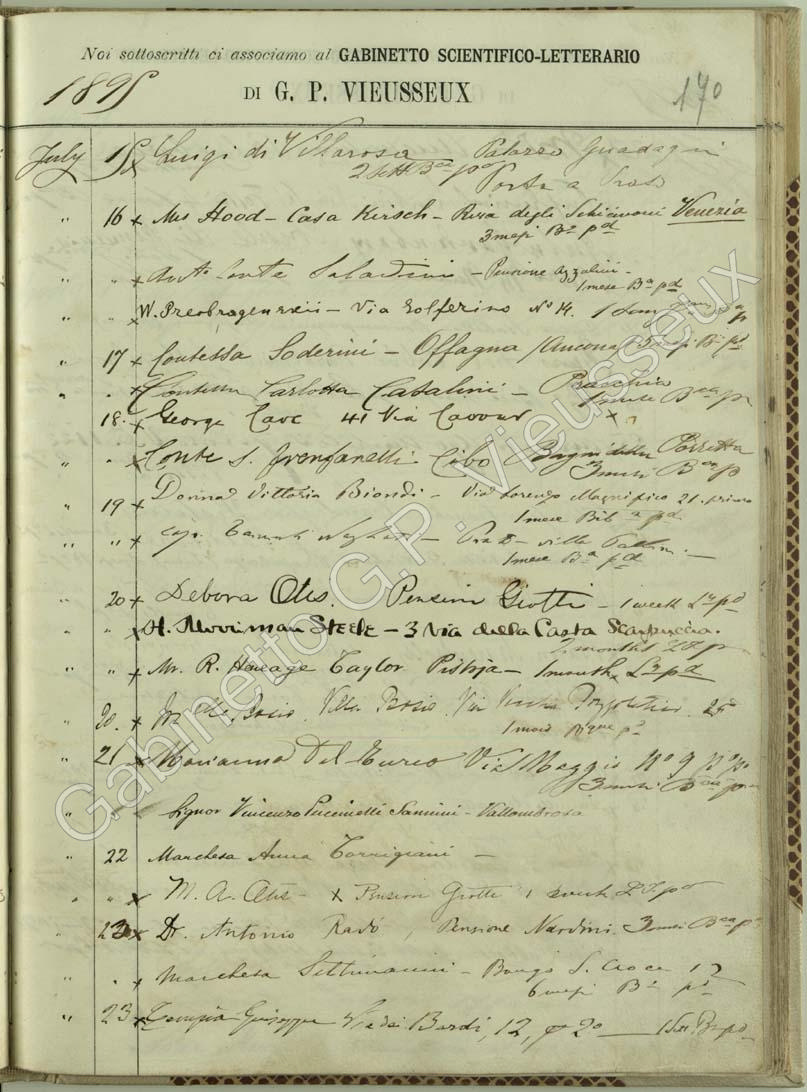 Noi sottoscritti ci associamo al GABINETTO SCIENTIFICO-LETTERARIO
1895
DI G. P. VIEUSSEUX
170
July 15 x Luigi di Villarosa Palazzo Guadagni
2 Sett Bca pd Porta a Prato
" 16 x Mrs Hood - Casa Kirsch - Riva degli Schiavoni Venezia
3 mesi Ba pd
" " x Conte Saladini - Pensione Azzolini -
1 mese Ba pd
" " x W. Preobragenskii - Via Solferino No 14. 1
" 17 x Contessa Soderini - Offagna (Ancona) 3 mesi Ba pd
" " x Contessa Carlotta Catalini - Pracchia
1 mese Bca p
18. x George Cave 41 Via Cavour x
" " x Conte S. Cibo Bagni della Porretta
3 mesi Bca p
" 19 x Donna Vittoria Biondi - Via Lorenzo Magnifico 21. primo
1 mese Bib a pd
" " x villa
1 mese Ba pd
" 20 x Debora Otis. Pension Giotti - 1 week Lr pd
" " x H. Merriman Steele - 3 Via della Costa Scarpuccia.
2 months p
" " x Mr. R. Heneage Taylor Pistoja - 1 month Lr pd
" 20. x Villa Bosio. Via
1 mois
" 21 x Marianna Del Turco Via Maggio No 9 po po
3 mesi Bca p
" " Signor Vincenzo Puccinelli Sannini - Vallombrosa
" 22 Marchesa Anna Torrigiani -
" " x M. A. Otis - x Pension Giotti 1 week pd
" 23 x Dr. Antonio Radó, Pensione Nardini. 3 mesi Bca p
" " x Marchesa Settimanni - Borgo S. Croce 17
6 mesi Ba pd
" 23 x Giuseppe Via dei Bardi, 12, po 2o - 1 Sett. Ba pd
Gabinetto G.P. Vieusseux